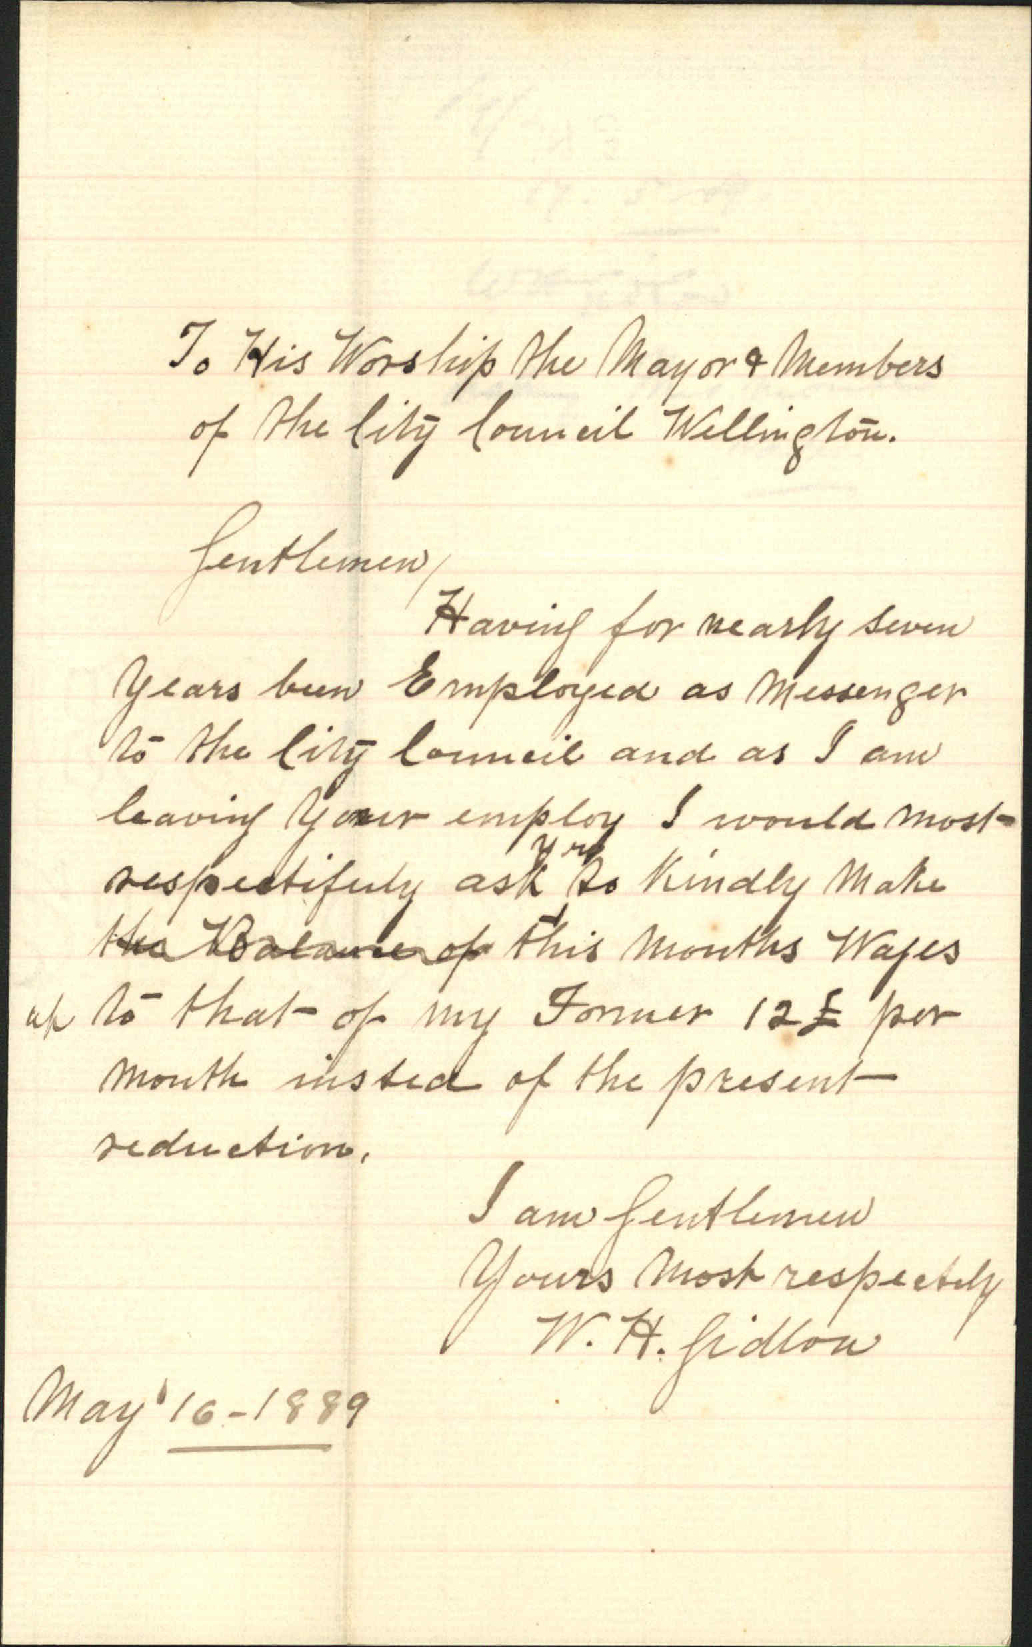 To His Worship the Mayor & Members
of the City Council Wellington.
Gentlemen/
Having for nearly seven
Years been Employed as Messenger
to the City Council and as I am
leaving Your employ I would most
respectifuly ask you to Kindly Make
the Balance of this Months Wages
up to that of my Former 12£ per
Month insted of the present
reduction.
I am Gentlemen
Yours Most respectely
W. H.
May 16-1889